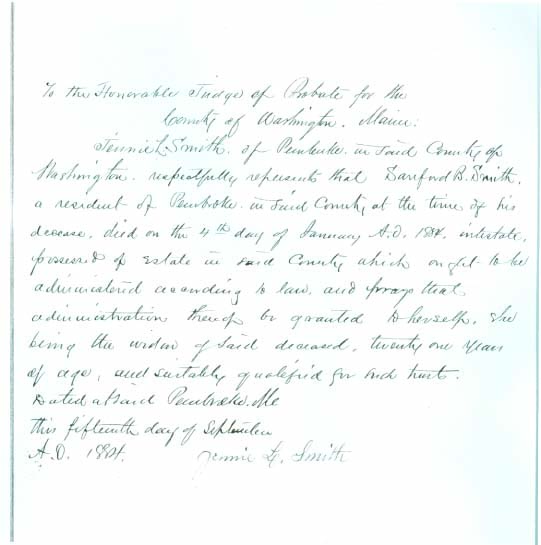 To the Honorable Judge of Probate for the
County of Washington. Maine:
Jennie L. Smith. of Pembroke. in said County of
Washington. respectfully represents that Danford B. Smith.
a resident of Pembroke. in said County at the time of his
decease. died on the 4th day of January A.D. 1884. intestate,
possessed of estate in said County which ought to be
administered according to law, and prays that
administration thereof be granted to herself, she
being the widow of said deceased, twenty one years
of age, and suitably qualified for such trust.
Dated at said Pembroke. Me
this fifteenth day of September
A.D. 1884. Jennie L. Smith